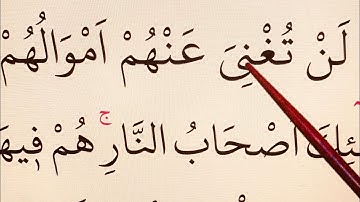 لَنْ تُغْنِىَ عَنْهُمْ اَمْوَالُهُمْ
اَصْحَابُ النَّارِ ۚ هُمْ فٖيهَا